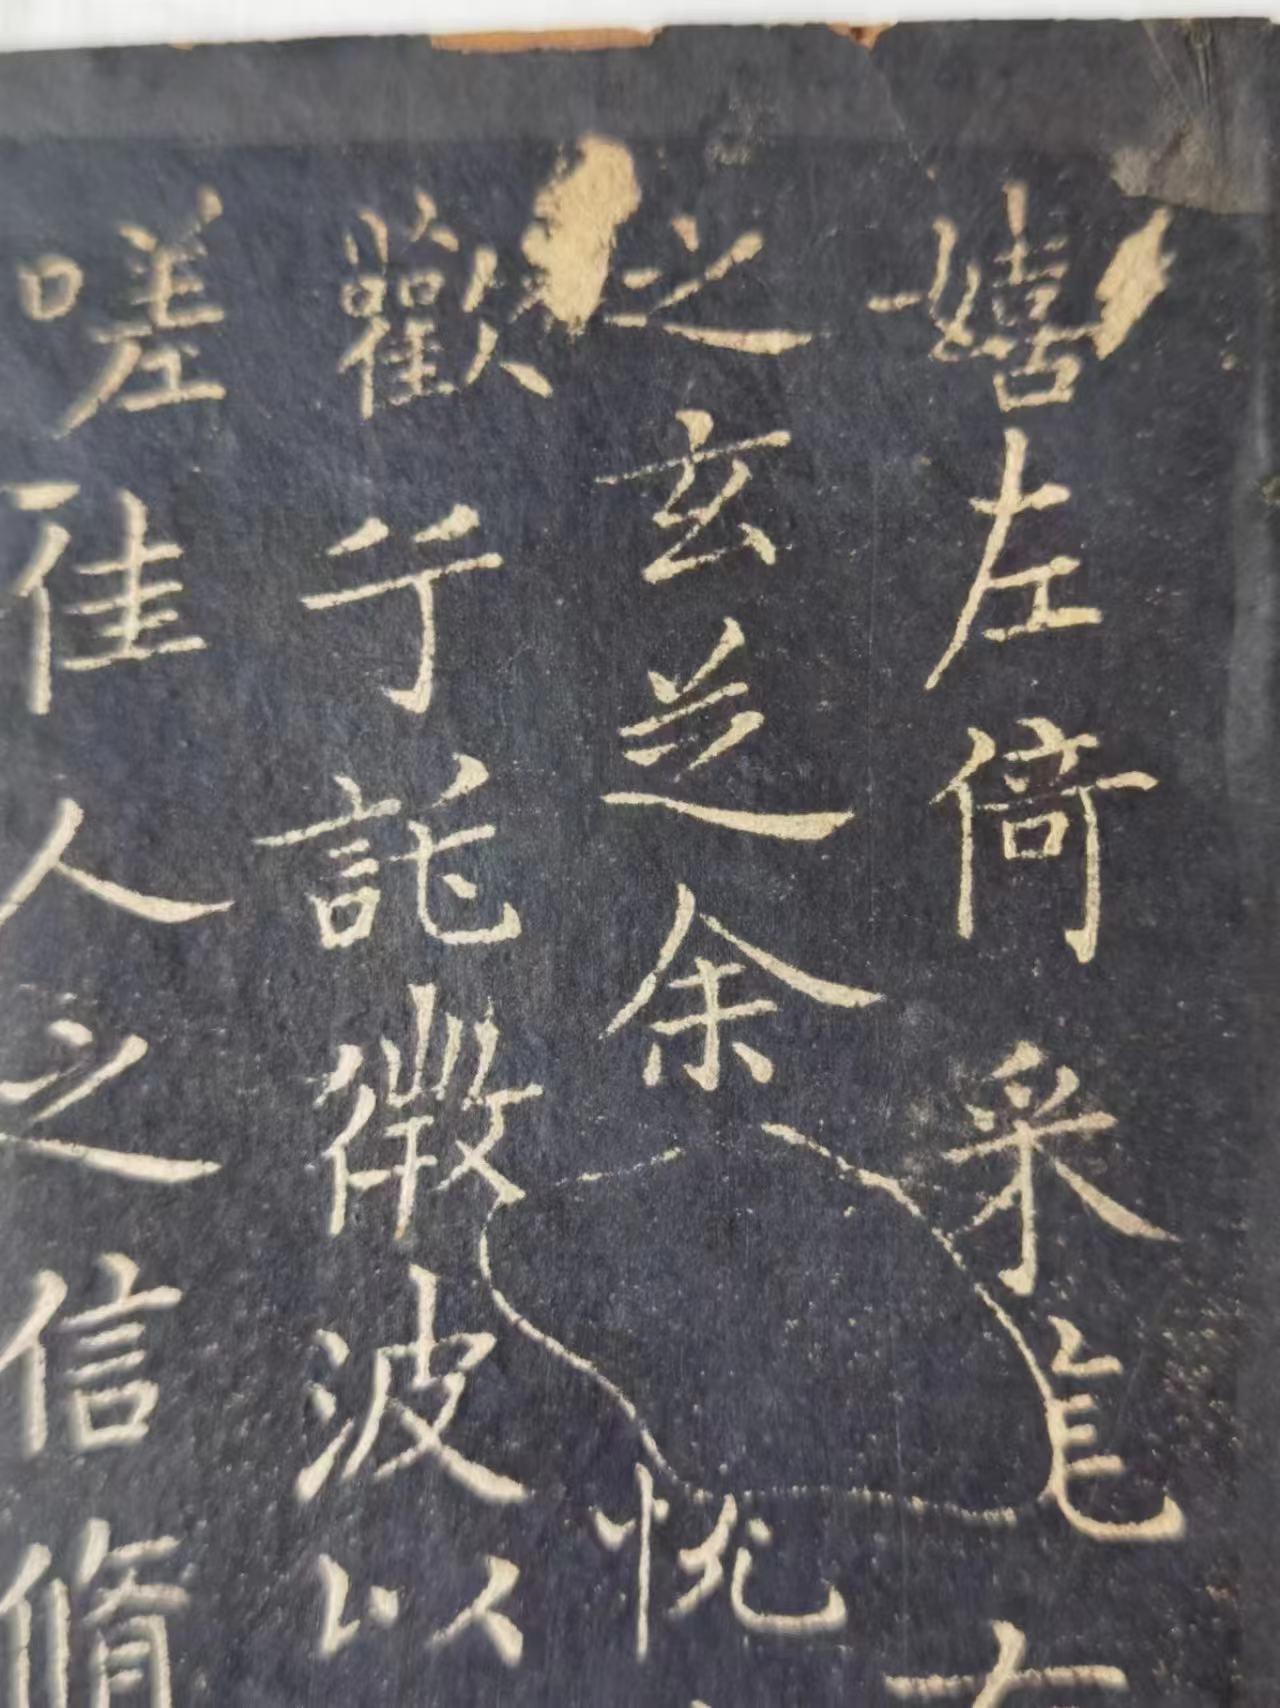 嬉左倚采旄
之玄芝余悅
歡兮託微波以
嗟佳人之信脩